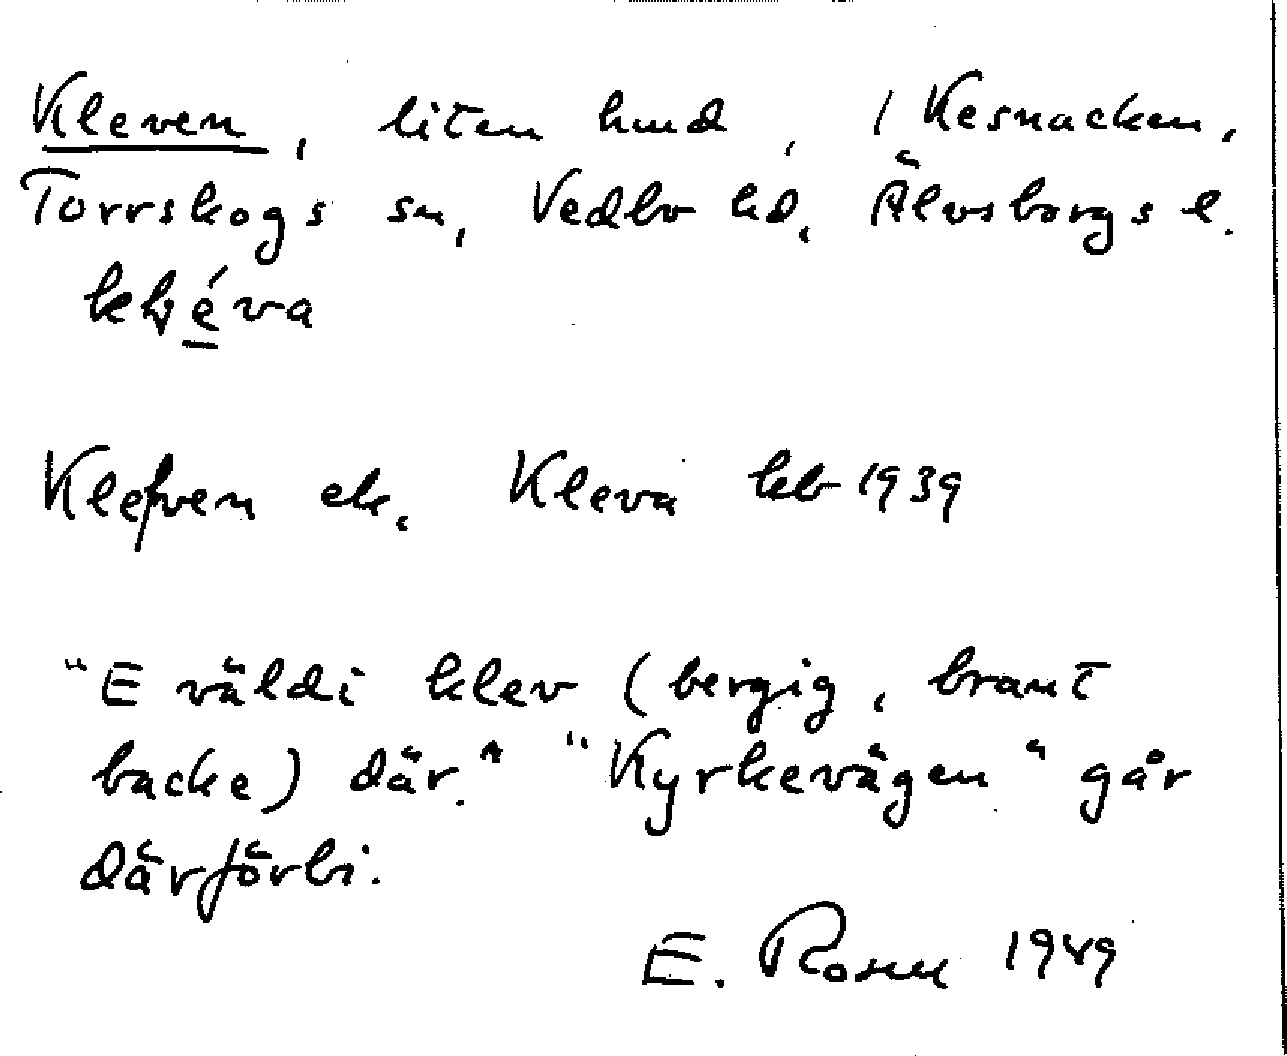 Kleven, liten hmd, i Kesnacken,
Torrskogs sn, Vedbo hd, Älvsborgs l.
Klefven ek. Kleva kb 1939
"E väldi klev (bergig, brant
backe) där." "Kyrkevägen" går
därförbi.
E. Rosen 1949